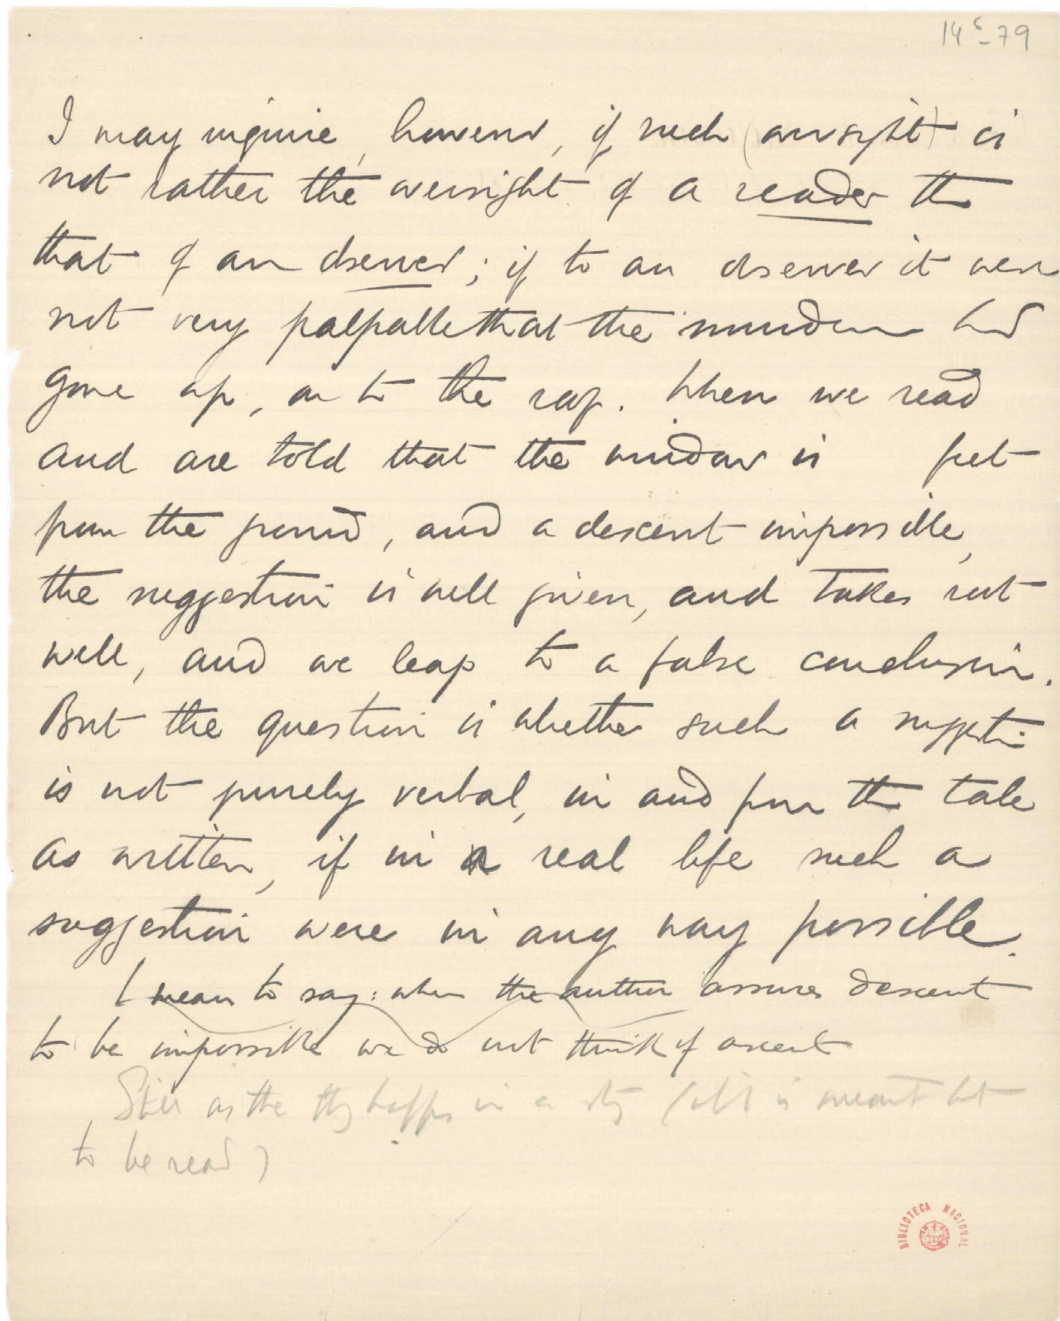 14 6-79
I may inquire, however, if such (oversight) is
not rather the oversight of a reader th
that of an observer; if to an observer it were
not very palpable that the murderer had
gone up, or to the roof. When we read
and are told that the window is feet
from the ground, and a descent impossible,
the suggestion is well given, and takes root
well, and we leap to a false conclusion.
But the question is whether such a suggestion
is not purely verbal, in and from the tale
as written, if in a real life such a
suggestion were in any way possible.
I mean to say: when the author assures descent
to be impossible we do not think of ascent
Still as the thg happs in a sty (wh is meant but
to be read)
BIBLIOTECA NACIONAL